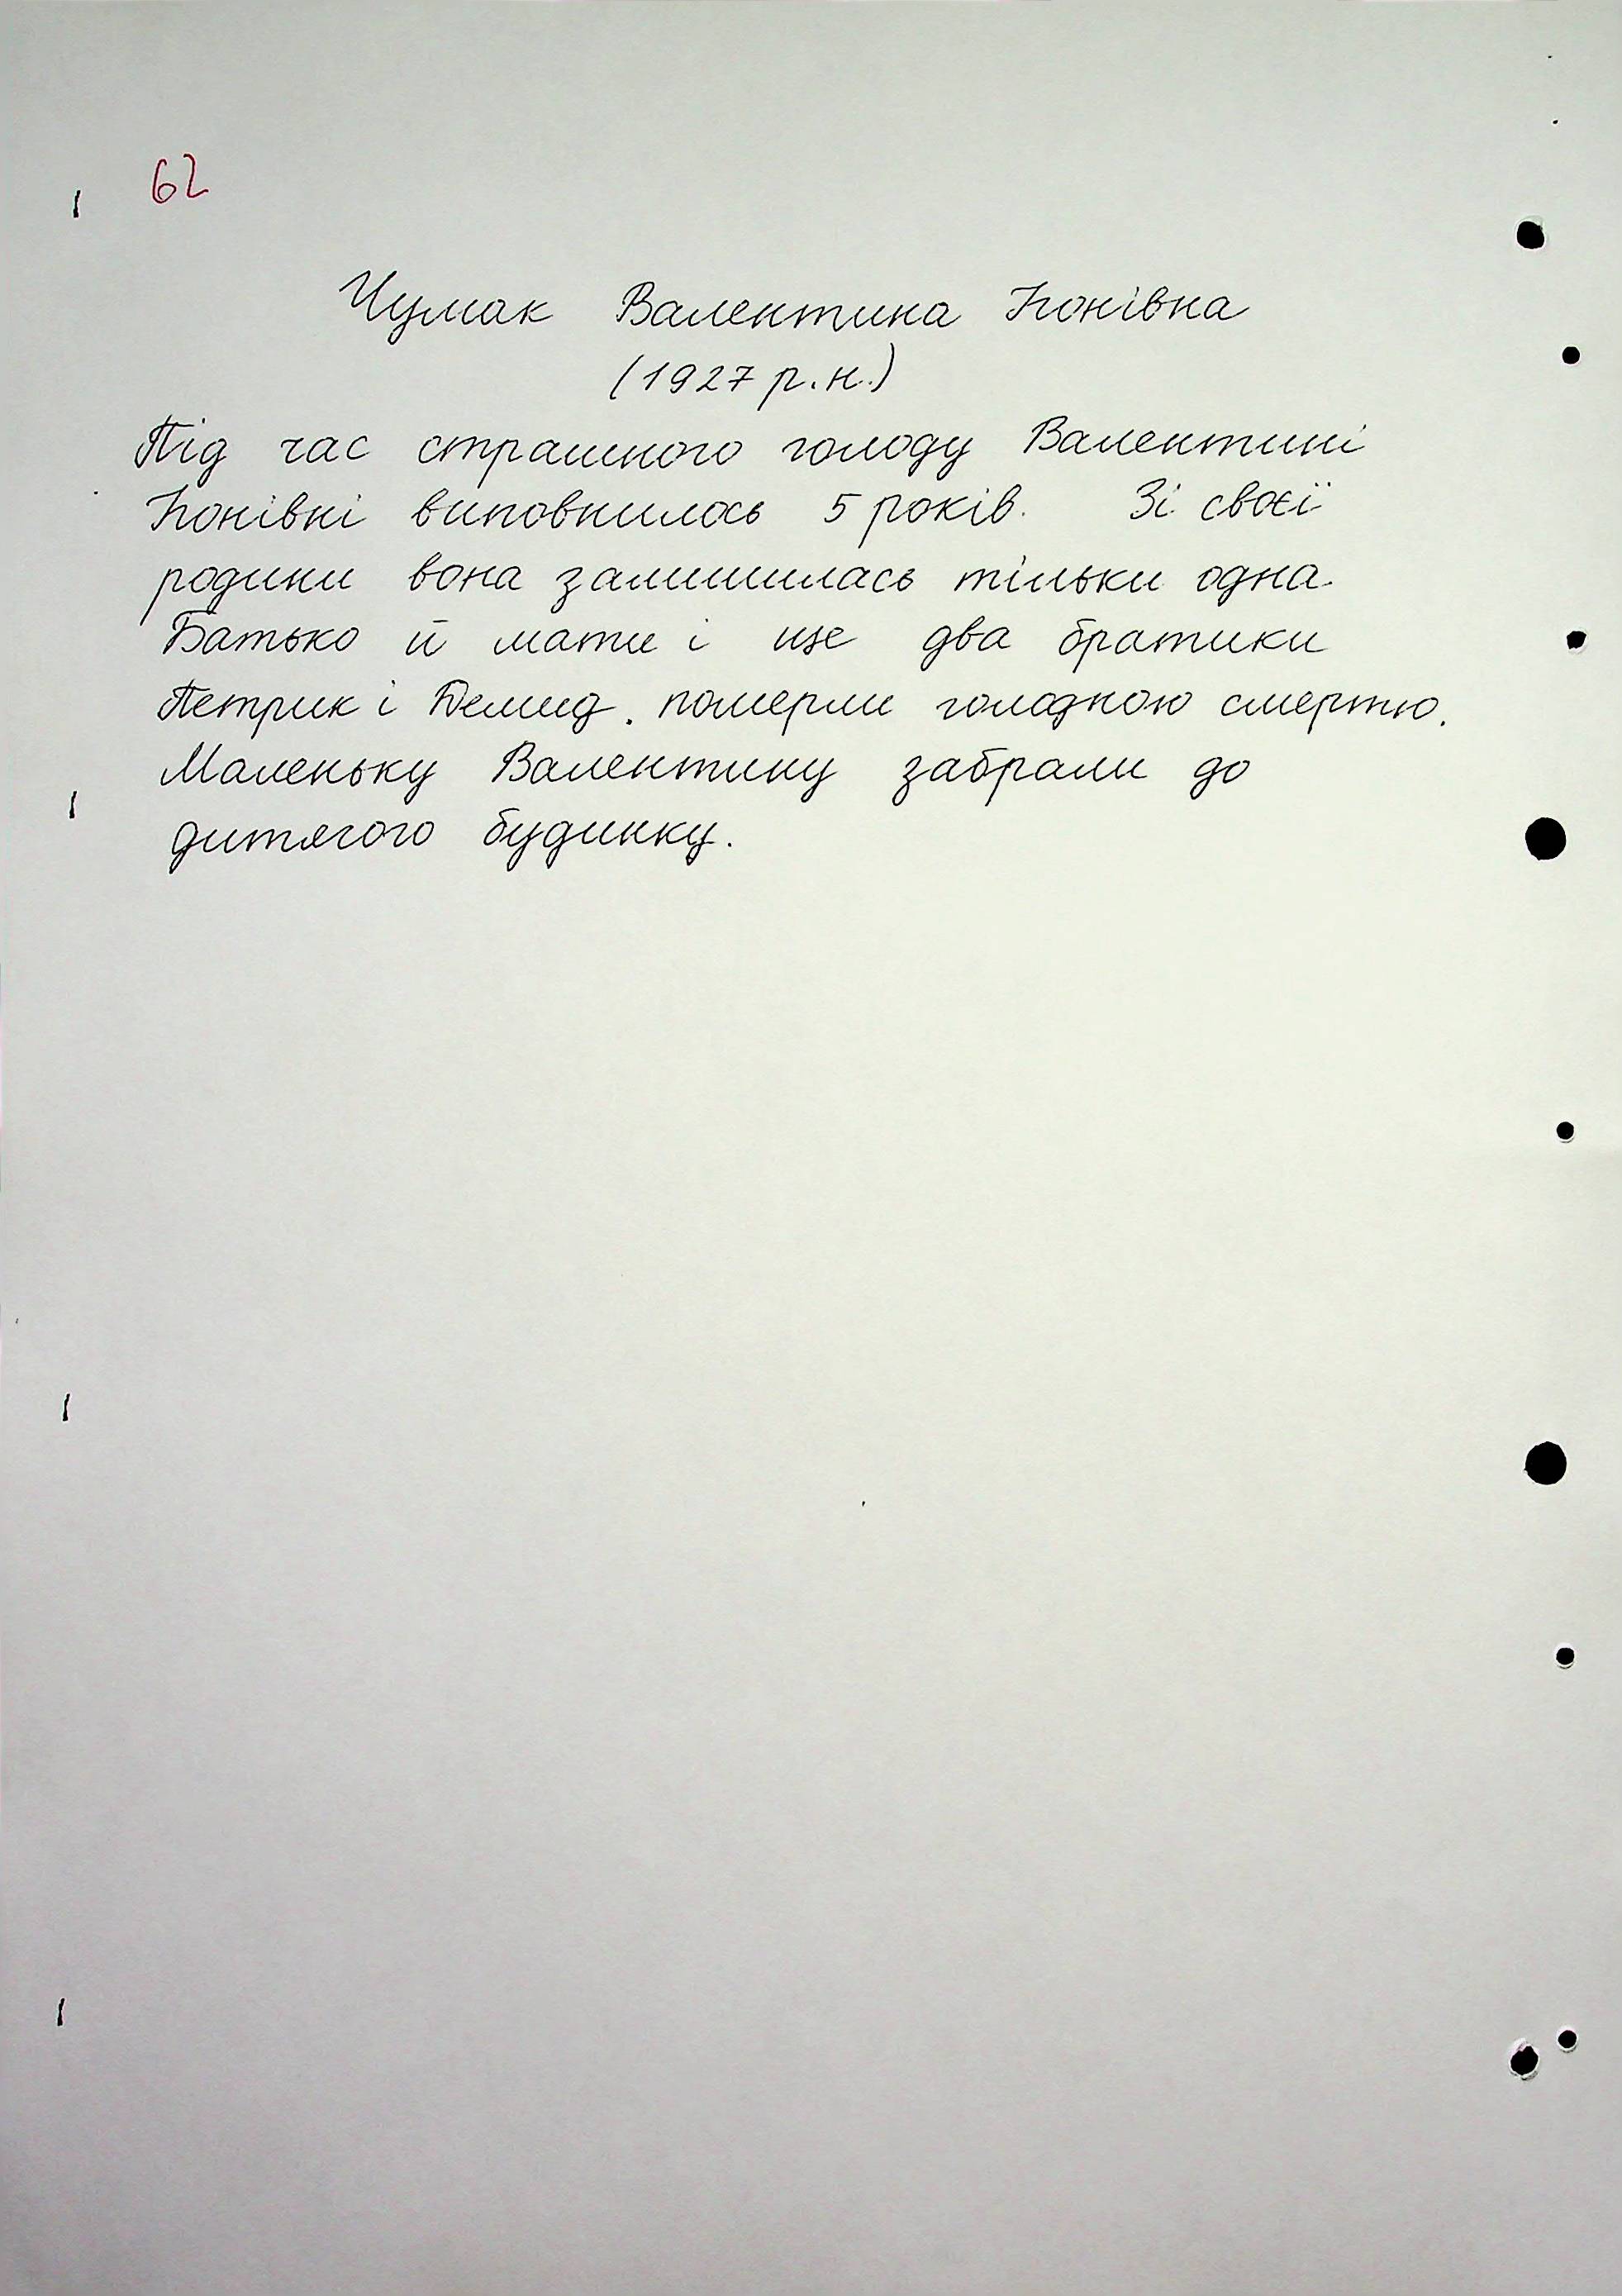 62
Чумак Валентина Йонівна
(1927 р.н.)
Під час страшного голоду Валентині
Йонівні виповнилось 5 років. Зі своєї
родини вона залишилась тільки одна.
Батько й мати і ще два братики
Петрик і Демид. померли голодною смертю.
Маленьку Валентину забрали до
дитячого будинку.